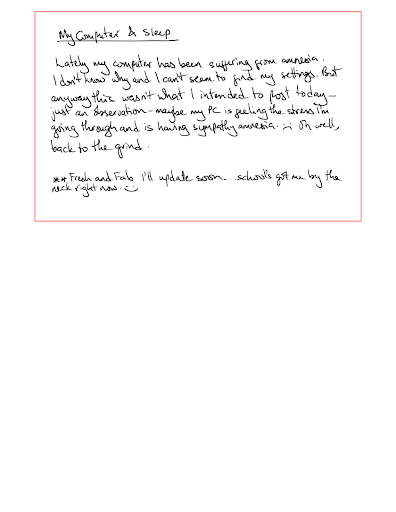 My Computer & Sleep
Lately my computer has been suffering from amnesia.
I don't know why and I can't seem to find my settings. But
anyway this wasn't what I intended to post today–
just an observation – maybe my PC is feeling the stress I'm
going through and is having sympathy amnesia. :-; Oh well,
back to the grind.
** Fresh and Fab I'll update soon... school's got me by the
neck right now. :)